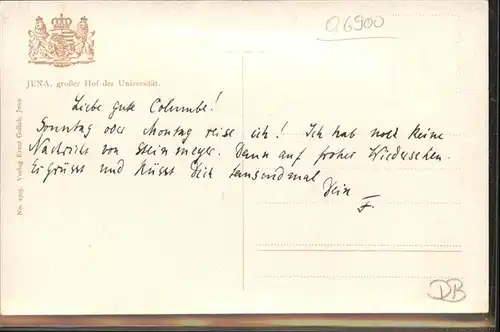 Q6900
JENA, großer Hof der Universität.
Liebe gute Columbe!
Sonntag oder Montag reise ich! Ich hab noch keine
Nachricht von Steinmeyer. Dann auf frohes Wiedersehen.
Es grüsst und küsst Dich tausendmal
Dein
F.
No. 1505 Verlag Ernst Gollich, Jena
DB